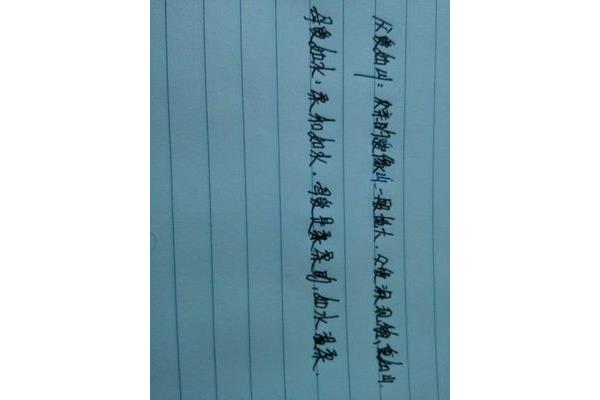 父爱如山:父亲的爱像山一般地大,父爱深沉,重如山.
母爱如水:柔和如水,母爱是柔柔的,如水温柔.